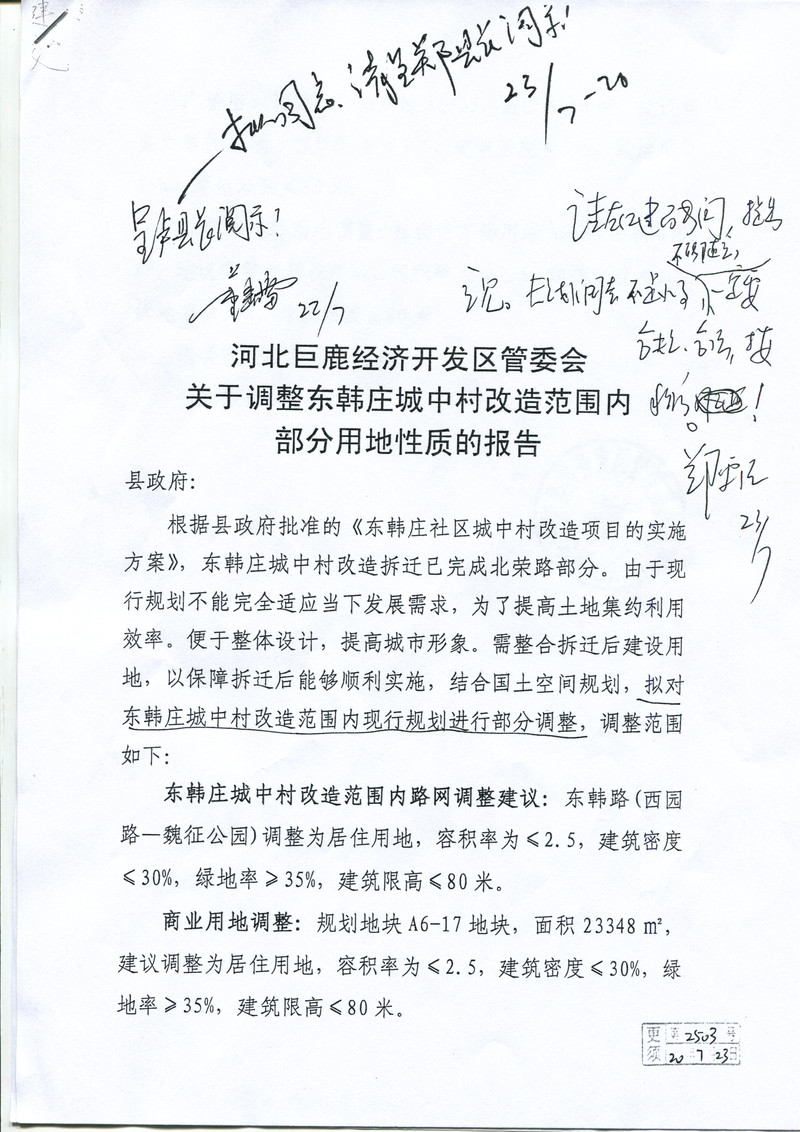 同志、请呈郑县长阅示!
23/7-20
呈卢县长阅示!
22/7
请
一定要
!
郑
23/7
河北巨鹿经济开发区管委会
关于调整东韩庄城中村改造范围内
部分用地性质的报告
县政府:
根据县政府批准的《东韩庄社区城中村改造项目的实施
方案》，东韩庄城中村改造拆迁已完成北荣路部分。由于现
行规划不能完全适应当下发展需求，为了提高土地集约利用
效率。便于整体设计，提高城市形象。需整合拆迁后建设用
地，以保障拆迁后能够顺利实施，结合国土空间规划，拟对
东韩庄城中村改造范围内现行规划进行部分调整，调整范围
如下:
东韩庄城中村改造范围内路网调整建议：东韩路(西园
路—魏征公园)调整为居住用地，容积率为≤2.5，建筑密度
≤30%，绿地率≥35%，建筑限高≤80 米。
商业用地调整：规划地块 A6-17 地块，面积 23348 ㎡，
建议调整为居住用地，容积率为≤2.5，建筑密度≤30%，绿
地率≥35%，建筑限高≤80 米。
2503 号
20 7 23日